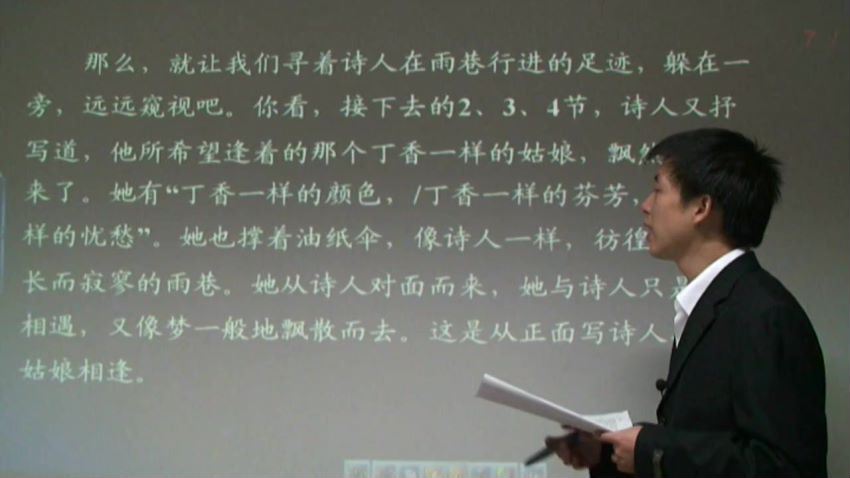 那么，就让我们寻着诗人在雨巷行进的足迹，躲在一
旁，远远窥视吧。你看，接下去的2、3、4节，诗人又抒
写道，他所希望逢着的那个丁香一样的姑娘，飘然
来了。她有“丁香一样的颜色，/丁香一样的芬芳，
样的忧愁”。她也撑着油纸伞，像诗人一样，彷徨
长而寂寥的雨巷。她从诗人对面而来，她与诗人只是
相遇，又像梦一般地飘散而去。这是从正面写诗人
姑娘相逢。